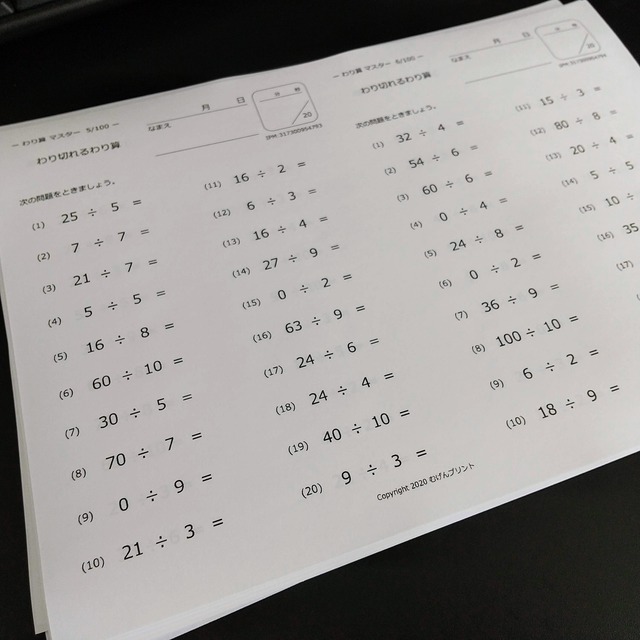 ― わり算 マスター 5/100 ―
月 日
なまえ
20
わり切れるわり算
IPM:317300994793
次の問題をときましょう。
(1) 25 ÷ 5 =
(2) 7 ÷ 7 =
(3) 21 ÷ 7 =
(4) 5 ÷ 5 =
(5) 16 ÷ 8 =
(6) 60 ÷ 10 =
(7) 30 ÷ 5 =
(8) 70 ÷ 7 =
(9) 0 ÷ 9 =
(10) 21 ÷ 3 =
(11) 16 ÷ 2 =
(12) 6 ÷ 3 =
(13) 16 ÷ 4 =
(14) 27 ÷ 9 =
(15) 0 ÷ 2 =
(16) 63 ÷ 9 =
(17) 24 ÷ 6 =
(18) 24 ÷ 4 =
(19) 40 ÷ 10 =
(20) 9 ÷ 3 =
― わり算 マスター 6/100 ―
月 日
なまえ
20
わり切れるわり算
IPM:317300994794
次の問題をときましょう。
(1) 32 ÷ 4 =
(2) 54 ÷ 6 =
(3) 60 ÷ 6 =
(4) 0 ÷ 4 =
(5) 24 ÷ 8 =
(6) 0 ÷ 2 =
(7) 36 ÷ 9 =
(8) 100 ÷ 10 =
(9) 6 ÷ 2 =
(10) 18 ÷ 9 =
(11) 15 ÷ 3 =
(12) 80 ÷ 8 =
(13) 20 ÷ 4 =
(14) 5 ÷ 5
(15) 10 ÷
(16) 35
(17)
Copyright 2020 むげんプリント